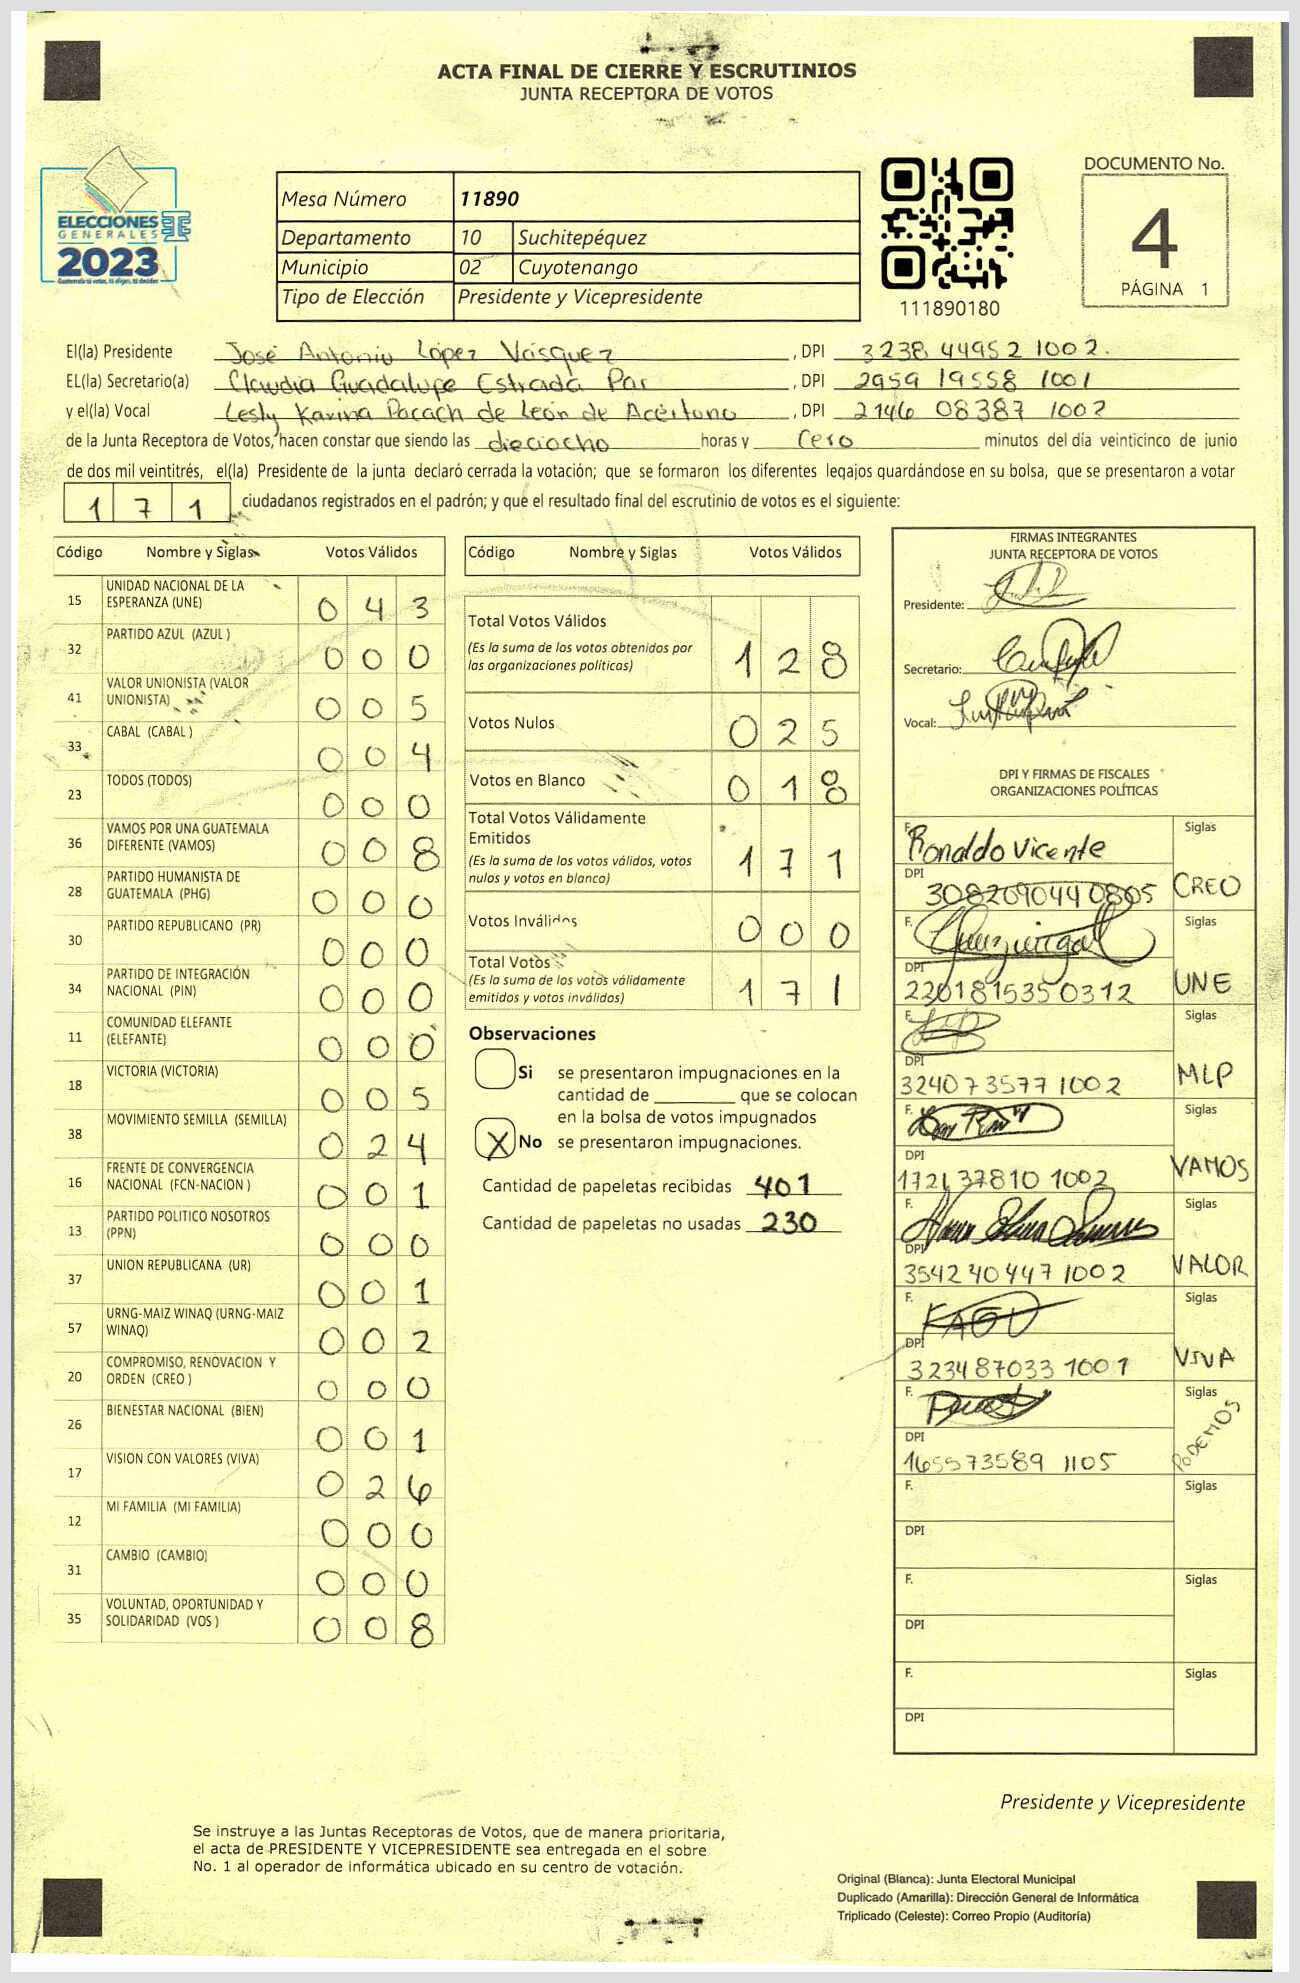 ACTA FINAL DE CIERRE Y ESCRUTINIOS
JUNTA RECEPTORA DE VOTOS
ELECCIONES
GENERALES
2023
Mesa Número 11890
Departamento 10 Suchitepéquez
Municipio 02 Cuyotenango
Tipo de Elección Presidente y Vicepresidente
111890180
DOCUMENTO No.
4
PÁGINA 1
El(la) Presidente José Antonio López Vásquez , DPI 3238 44952 1002.
EL(la) Secretario(a) Claudia Guadalupe Estrada Par , DPI 2959 19558 1001
y el(la) Vocal Lesly Karina Pacach de León de Aceituno , DPI 2146 08387 1002
de la Junta Receptora de Votos, hacen constar que siendo las dieciocho horas y cero minutos del día veinticinco de junio
de dos mil veintitrés, el(la) Presidente de la junta declaró cerrada la votación; que se formaron los diferentes legajos guardándose en su bolsa, que se presentaron a votar
171 ciudadanos registrados en el padrón; y que el resultado final del escrutinio de votos es el siguiente:
Código Nombre y Siglas Votos Válidos
15 UNIDAD NACIONAL DE LA ESPERANZA (UNE) 0 4 3
32 PARTIDO AZUL (AZUL ) 0 0 0
41 VALOR UNIONISTA (VALOR UNIONISTA) 0 0 5
33 CABAL (CABAL ) 0 0 4
23 TODOS (TODOS) 0 0 0
36 VAMOS POR UNA GUATEMALA DIFERENTE (VAMOS) 0 0 8
28 PARTIDO HUMANISTA DE GUATEMALA (PHG) 0 0 0
30 PARTIDO REPUBLICANO (PR) 0 0 0
34 PARTIDO DE INTEGRACIÓN NACIONAL (PIN) 0 0 0
11 COMUNIDAD ELEFANTE (ELEFANTE) 0 0 0
18 VICTORIA (VICTORIA) 0 0 5
38 MOVIMIENTO SEMILLA (SEMILLA) 0 2 4
16 FRENTE DE CONVERGENCIA NACIONAL (FCN-NACION ) 0 0 1
13 PARTIDO POLITICO NOSOTROS (PPN) 0 0 0
37 UNION REPUBLICANA (UR) 0 0 1
57 URNG-MAIZ WINAQ (URNG-MAIZ WINAQ) 0 0 2
20 COMPROMISO, RENOVACION Y ORDEN (CREO ) 0 0 0
26 BIENESTAR NACIONAL (BIEN) 0 0 1
17 VISION CON VALORES (VIVA) 0 2 6
12 MI FAMILIA (MI FAMILIA) 0 0 0
31 CAMBIO (CAMBIO) 0 0 0
35 VOLUNTAD, OPORTUNIDAD Y SOLIDARIDAD (VOS ) 0 0 8
Código Nombre y Siglas Votos Válidos
Total Votos Válidos 1 2 8
(Es la suma de los votos obtenidos por
las organizaciones políticas)
Votos Nulos 0 2 5
Votos en Blanco 0 1 8
Total Votos Válidamente
Emitidos 1 7 1
(Es la suma de los votos válidos, votos
nulos y votos en blanco)
Votos Inválidos 0 0 0
Total Votos 1 7 1
(Es la suma de los votos válidamente
emitidos y votos inválidos)
Observaciones
Si se presentaron impugnaciones en la
cantidad de ________ que se colocan
en la bolsa de votos impugnados
X No se presentaron impugnaciones.
Cantidad de papeletas recibidas 401
Cantidad de papeletas no usadas 230
FIRMAS INTEGRANTES
JUNTA RECEPTORA DE VOTOS
Presidente:
Secretario:
Vocal:
DPI Y FIRMAS DE FISCALES
ORGANIZACIONES POLÍTICAS
F. Ronaldo Vicente Siglas
DPI 3082090440805 CREO
F. Siglas
DPI 2201815350312 UNE
F. Siglas
DPI 3240735771002 MLP
F. Siglas
DPI 1721378101002 VAMOS
F. Siglas
DPI 3542404471002 VALOR
F. Siglas
DPI 3234870331001 VIVA
F. Siglas
DPI 1655735891105 PODEMOS
F. Siglas
DPI
F. Siglas
DPI
F. Siglas
DPI
Presidente y Vicepresidente
Se instruye a las Juntas Receptoras de Votos, que de manera prioritaria,
el acta de PRESIDENTE Y VICEPRESIDENTE sea entregada en el sobre
No. 1 al operador de informática ubicado en su centro de votación.
Original (Blanca): Junta Electoral Municipal
Duplicado (Amarilla): Dirección General de Informática
Triplicado (Celeste): Correo Propio (Auditoría)